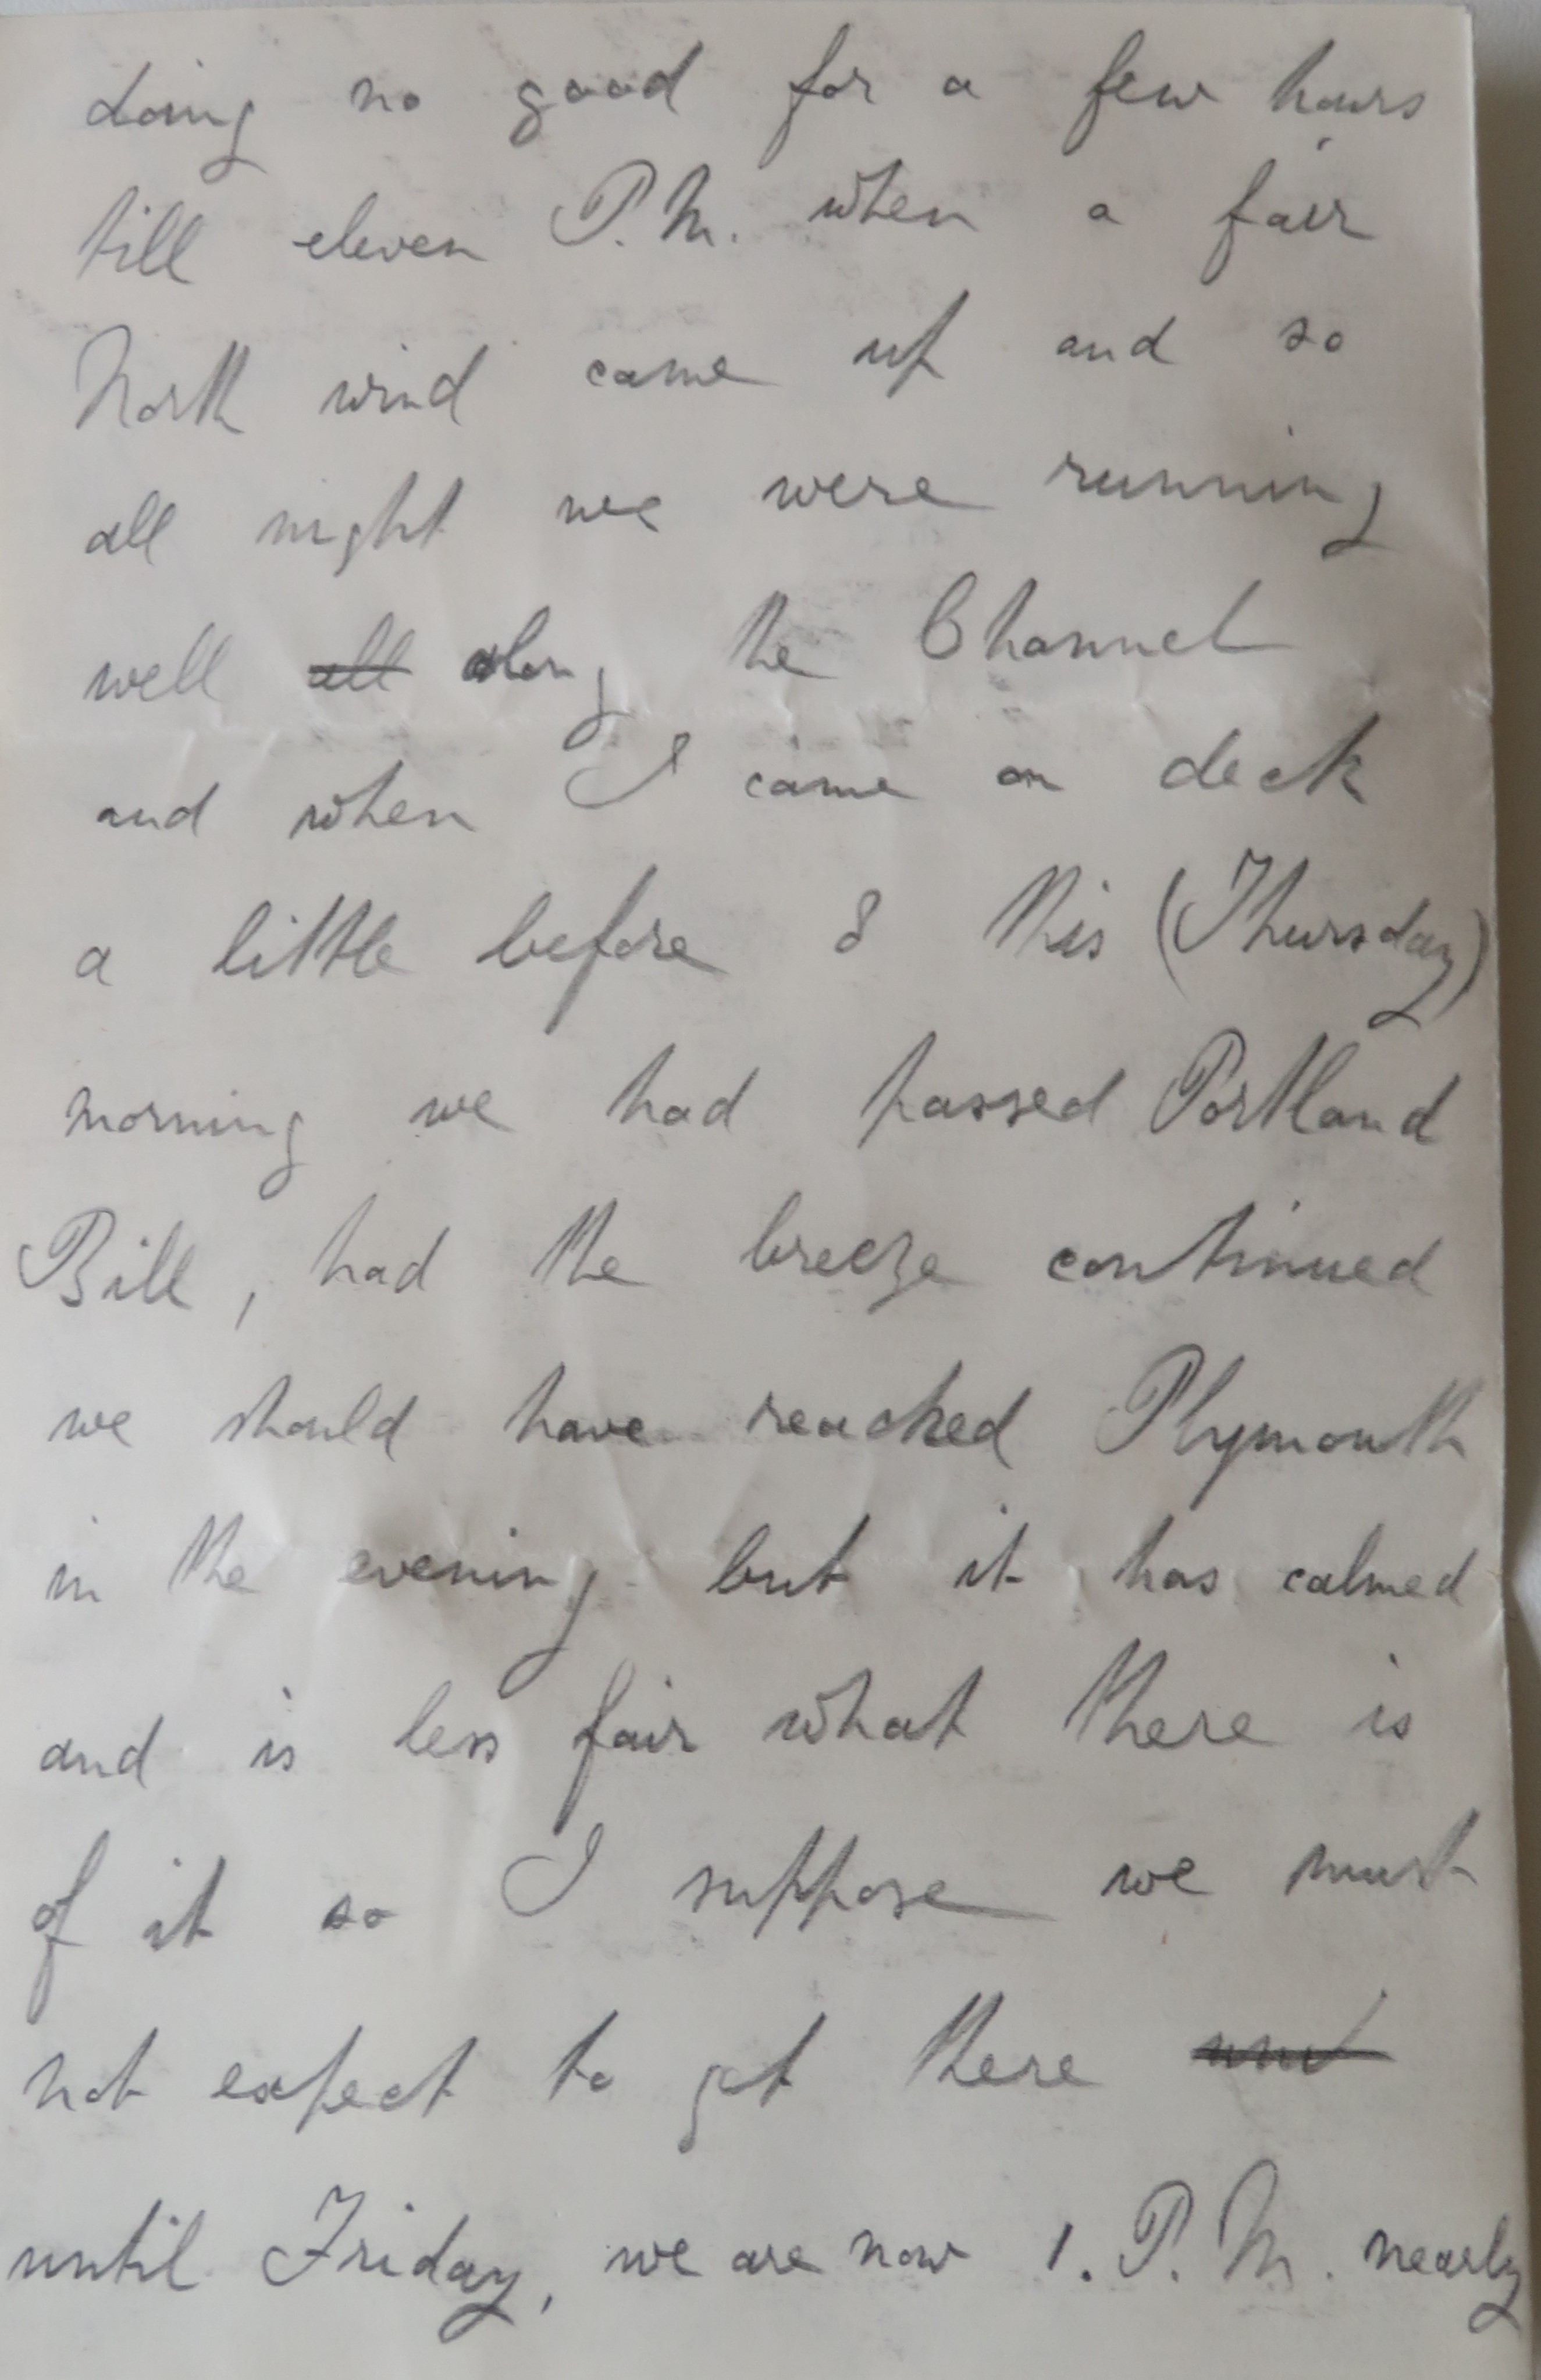 doing no good for a few hours
till eleven P.M. when a fair
North wind came up and so
all night we were running
well all along the Channel
and when I came on deck
a little before 8 this (Thursday)
morning we had passed Portland
Bill, had the breeze continued
we should have reached Plymouth
in the evening but it has calmed
and is less fair what there is
of it so I suppose we must
not expect to get there
until Friday, we are now 1. P.M. nearly